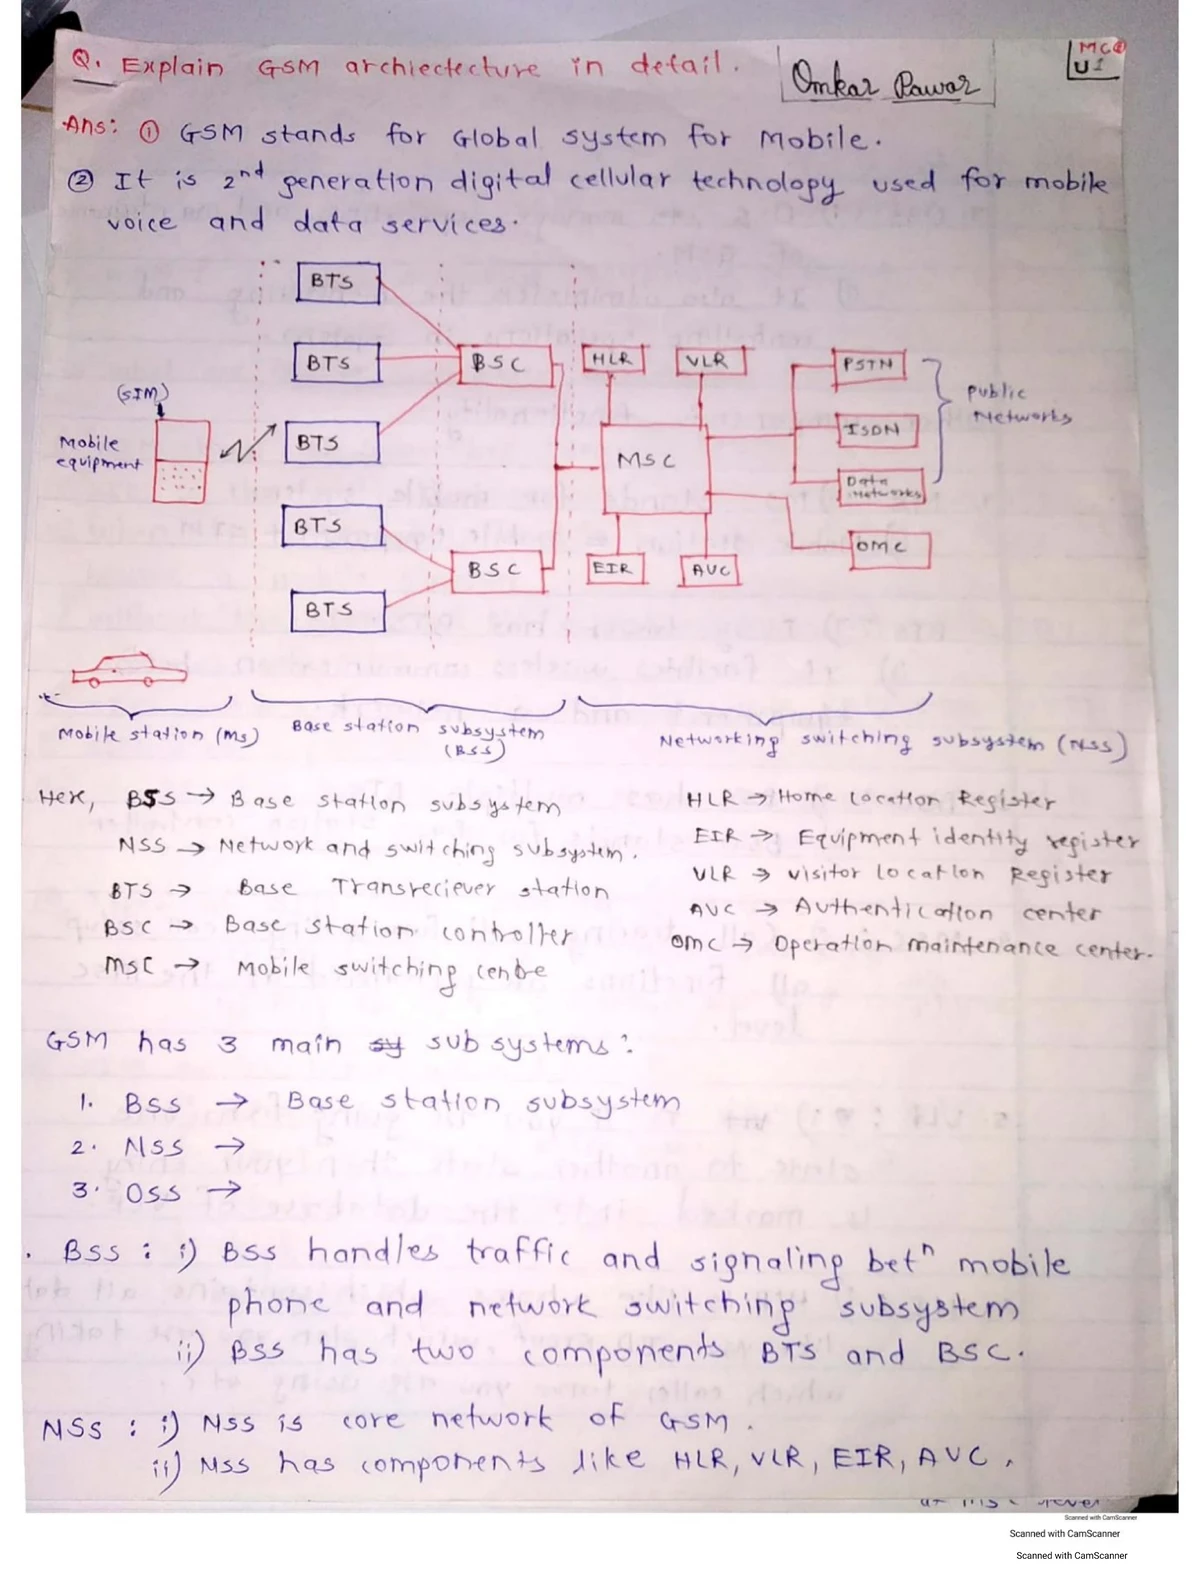 Q. Explain GSM archiectecture in detail.
Omkar Pawar
MC
U1
Ans: ① GSM stands for Global system for Mobile.
② It is 2nd generation digital cellular technology used for mobile
voice and data services.
BTS
BTS
BSC
HLR
VLR
PSTN
(SIM)
Public
Networks
Mobile
equipment
BTS
MSC
ISDN
Data
Networks
BTS
OMC
BSC
EIR
AUC
BTS
Mobile station (MS)
Base station subsystem
(BSS)
Networking switching subsystem (NSS)
Here, BSS → Base station subsystem
NSS → Network and switching subsystem.
BTS → Base Transreciever station
BSC → Base station controller
MSC → Mobile switching centre
HLR → Home location Register
EIR → Equipment identity register
VLR → visitor location Register
AUC → Authentication center
OMC → Operation maintenance center.
GSM has 3 main sy sub systems:
1. BSS → Base station subsystem
2. NSS →
3. OSS →
. BSS : i) BSS handles traffic and signaling betn mobile
phone and network switching subsystem
ii) BSS has two components BTS and BSC.
NSS : i) NSS is core network of GSM.
ii) NSS has components like HLR, VLR, EIR, AUC,
Scanned with CamScanner
Scanned with CamScanner
Scanned with CamScanner